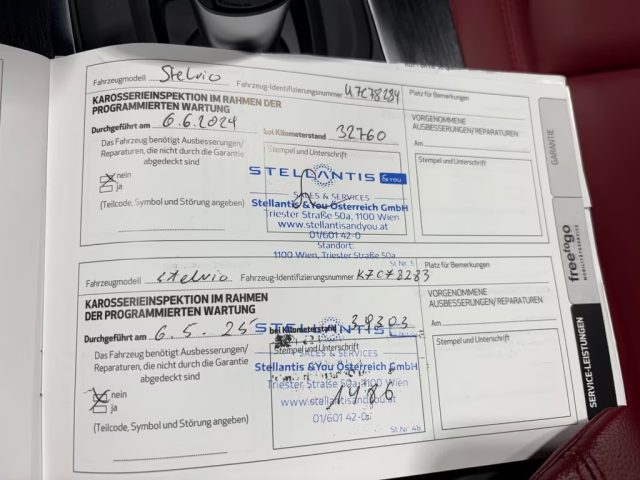 Fahrzeugmodell Stelvio Fahrzeug-Identifizierungsnummer U7C78284
Platz für Bemerkungen
KAROSSERIEINSPEKTION IM RAHMEN DER
PROGRAMMIERTEN WARTUNG
Durchgeführt am 6.6.2024 bei Kilometerstand 32760
VORGENOMMENE
AUSBESSERUNGEN/ REPARATUREN
Am
Das Fahrzeug benötigt Ausbesserungen/
Reparaturen, die nicht durch die Garantie
abgedeckt sind
nein
ja
(Teilcode, Symbol und Störung angeben)
Stempel und Unterschrift
STELLANTIS &YOU
SALES & SERVICES
Stellantis &You Österreich GmbH
Triester Straße 50a, 1100 Wien
www.stellantisandyou.at
01/601 42-0
Standort:
1100 Wien, Triester Straße 50a
St.Nr. 5
Stempel und Unterschrift
Fahrzeugmodell Stelvio Fahrzeug-Identifizierungsnummer K7C78283
Platz für Bemerkungen
KAROSSERIEINSPEKTION IM RAHMEN
DER PROGRAMMIERTEN WARTUNG
Durchgeführt am 6.5.25 bei Kilometerstand 38303
VORGENOMMENE
AUSBESSERUNGEN/ REPARATUREN
Am
Das Fahrzeug benötigt Ausbesserungen/
Reparaturen, die nicht durch die Garantie
abgedeckt sind
nein
ja
(Teilcode, Symbol und Störung angeben)
Stempel und Unterschrift
STELLANTIS
SALES & SERVICES
Stellantis &You Österreich GmbH
Triester Straße 50a, 1100 Wien
www.stellantisandyou.at
01/601 42-0
St.Nr. 48
Stempel und Unterschrift
GARANTIE
freetogo
MOBILITÄTSSERVICE
SERVICE-LEISTUNGEN